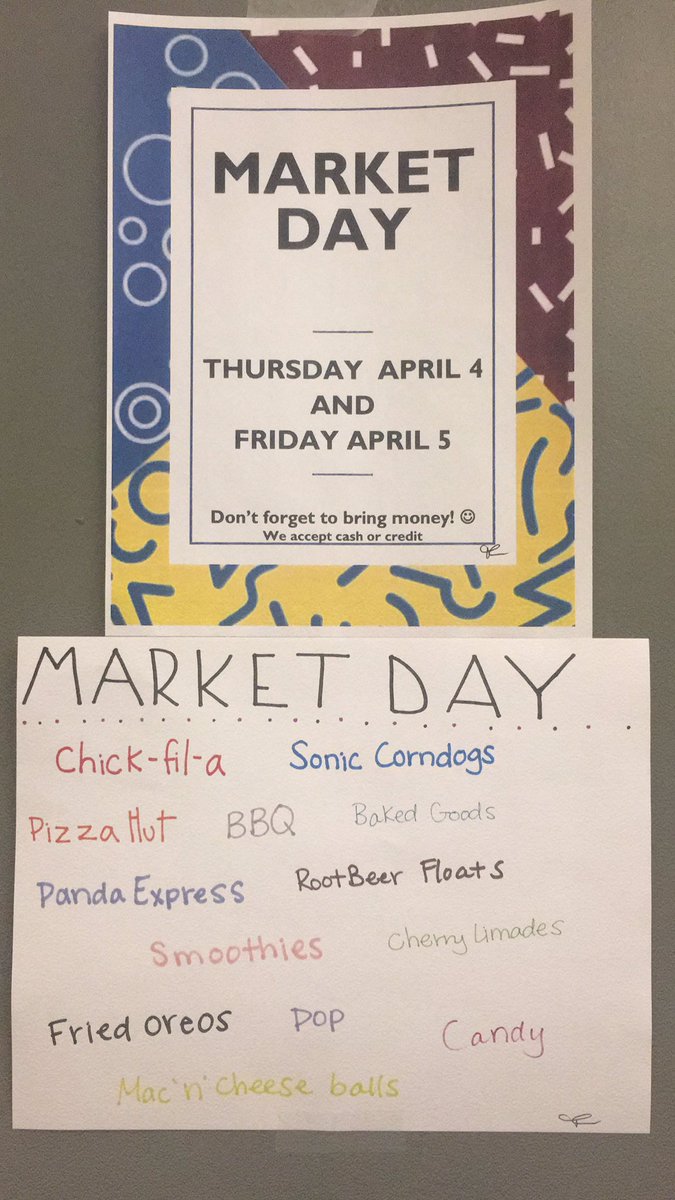 MARKET
DAY
THURSDAY APRIL 4
AND
FRIDAY APRIL 5
Don't forget to bring money! ☺
We accept cash or credit
MARKET DAY
Chick-fil-a Sonic Corndogs
Pizza Hut BBQ Baked Goods
Panda Express RootBeer Floats
Smoothies Cherry Limades
Fried oreos Pop Candy
Mac'n'cheese balls